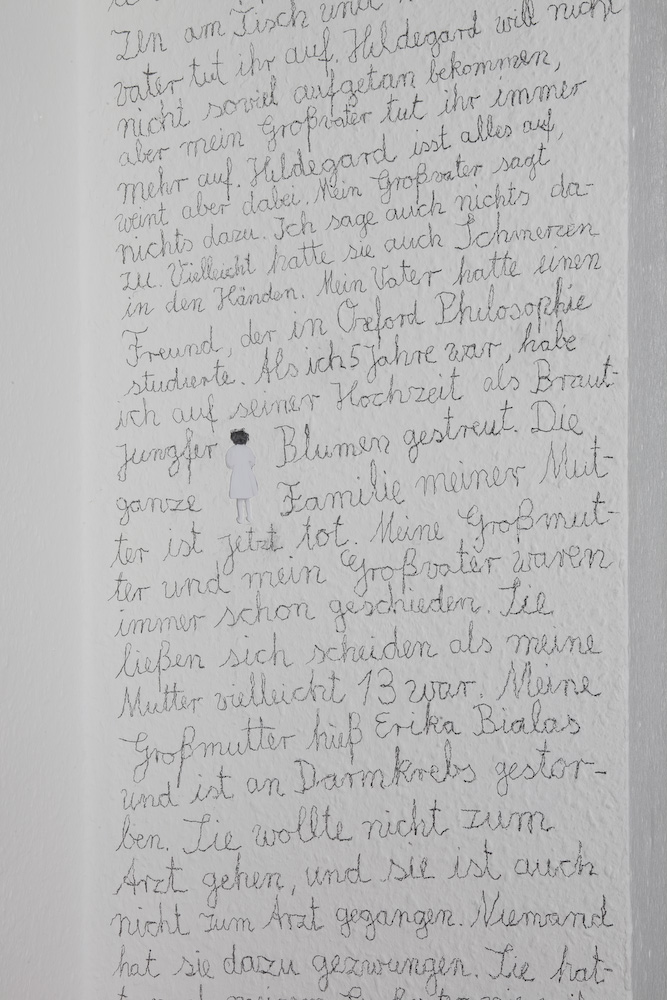 zen am Tisch und
vater tut ihr auf. Hildegard will nicht
nicht soviel aufgetan bekommen,
aber mein Großvater tut ihr immer
mehr auf. Hildegard isst alles auf,
weint aber dabei. Mein Großvater sagt
nichts dazu. Ich sage auch nichts da-
zu. Vielleicht hatte sie auch Schmerzen
in den Händen. Mein Vater hatte einen
Freund, der in Oxford Philosophie
studierte. Als ich 5 Jahre war, habe
ich auf seiner Hochzeit als Braut-
jungfer Blumen gestreut. Die
ganze Familie meiner Mut-
ter ist jetzt tot. Meine Großmut-
ter und mein Großvater waren
immer schon geschieden. Sie
ließen sich scheiden als meine
Mutter vielleicht 13 war. Meine
Großmutter hieß Erika Bialas
und ist an Darmkrebs gestor-
ben. Sie wollte nicht zum
Arzt gehen, und sie ist auch
nicht zum Arzt gegangen. Niemand
hat sie dazu gezwungen. Sie hat-